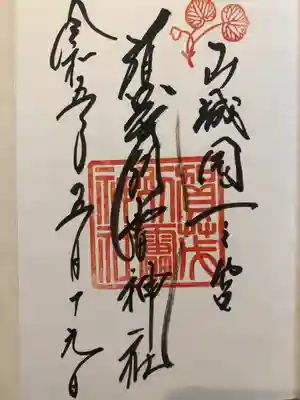 山城国一之宮
賀茂別雷神社
令和五年五月十九日
賀茂
別雷
神社